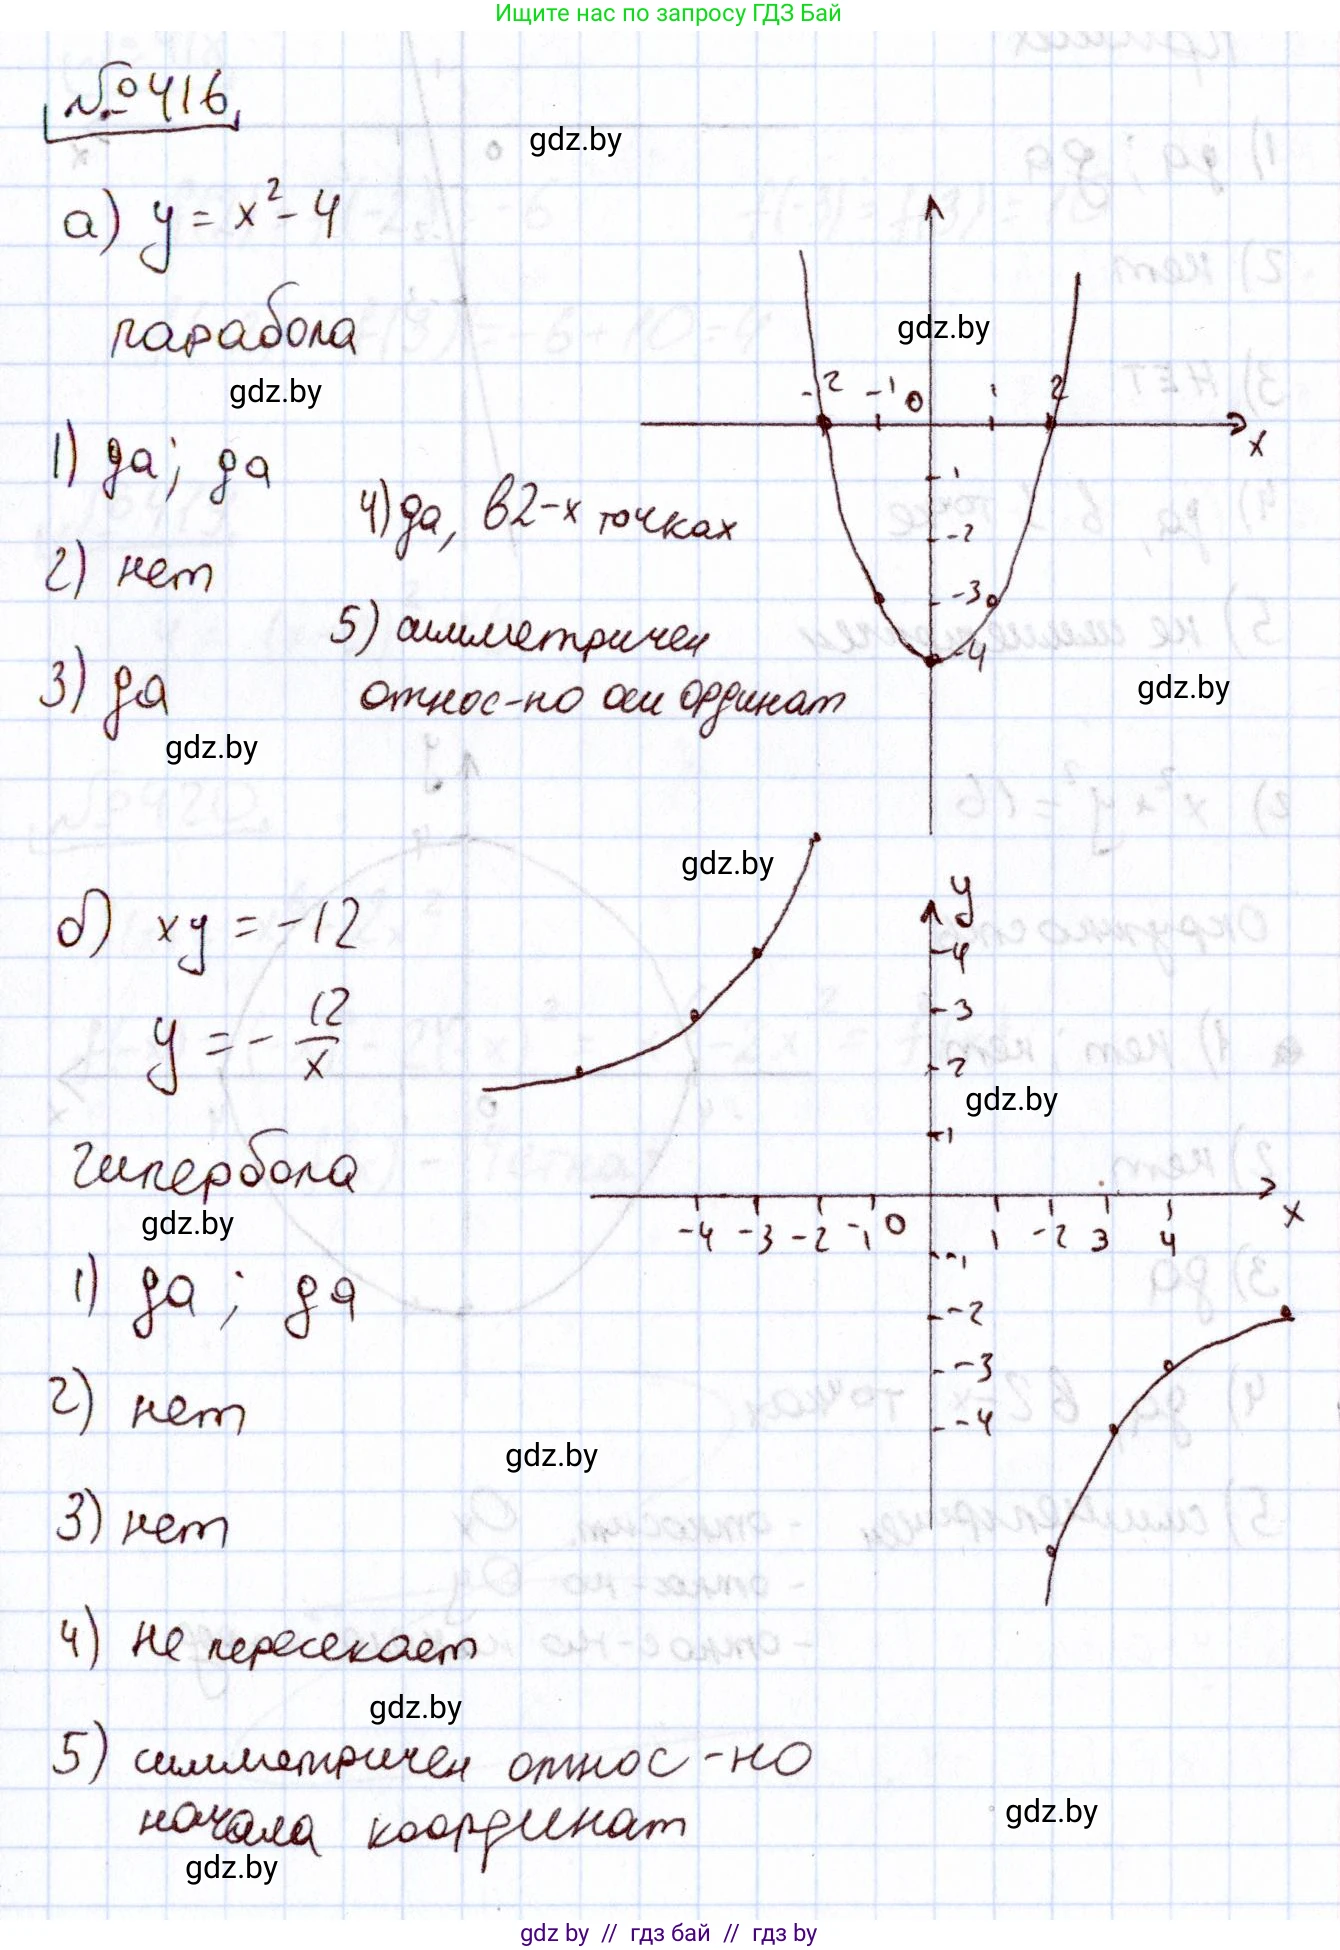 Ищите нас по запросу ГДЗ Бай
№416
gdz.by
а) y = x² - 4
парабола
gdz.by
gdz.by
-2 -1 0 1 2
x
-1
-2
-3
-4
1) да; да
2) нет
3) да
4) да, в 2-х точках
5) симметричен
относ-но оси ординат
gdz.by
gdz.by
gdz.by
б) xy = -12
y = - 12/x
гипербола
gdz.by
y
4
3
2
gdz.by
1
-4 -3 -2 -1 0 1 -2 3 4
x
-1
-2
-3
-4
1) да; да
2) нет
gdz.by
3) нет
4) не пересекает
gdz.by
5) симметричен относ-но
начала координат
gdz.by
gdz.by
gdz by // гдз бай // gdz by